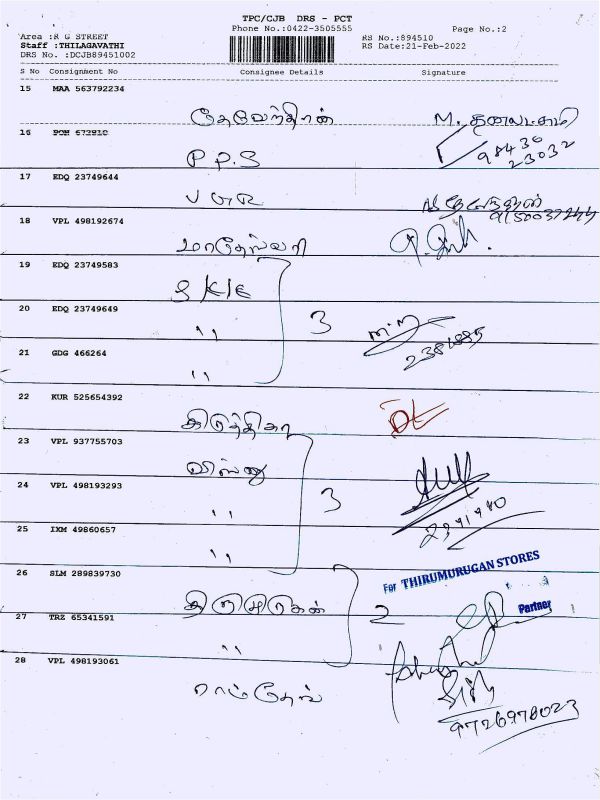 TPC/CJB DRS - PCT
Phone No.:0422-3505555
Page No.:2
Area :R G STREET
Staff :THILAGAVATHI
DRS No. :DCJB89451002
RS No.:894510
RS Date:21-Feb-2022
S No Consignment No Consignee Details Signature
15 MAA 563792234
தேவேந்திரன் M. தனலட்சுமி
16
98430
23032
P P S
17 EDQ 23749644
18 VPL 498192674
மாதேஸ்வரி
19 EDQ 23749583
S K E
20 EDQ 23749649
" 3
21 GDG 466264
"
22 KUR 525654392
கிருத்திகா
23 VPL 937755703
விஸ்ணு
24 VPL 498193293
" 3
25 IXM 49860657
"
26 SLM 289839730
For THIRUMURUGAN STORES
திருமுருகன் 2
Partner
27 TRZ 65341591
"
28 VPL 498193061
9726978023